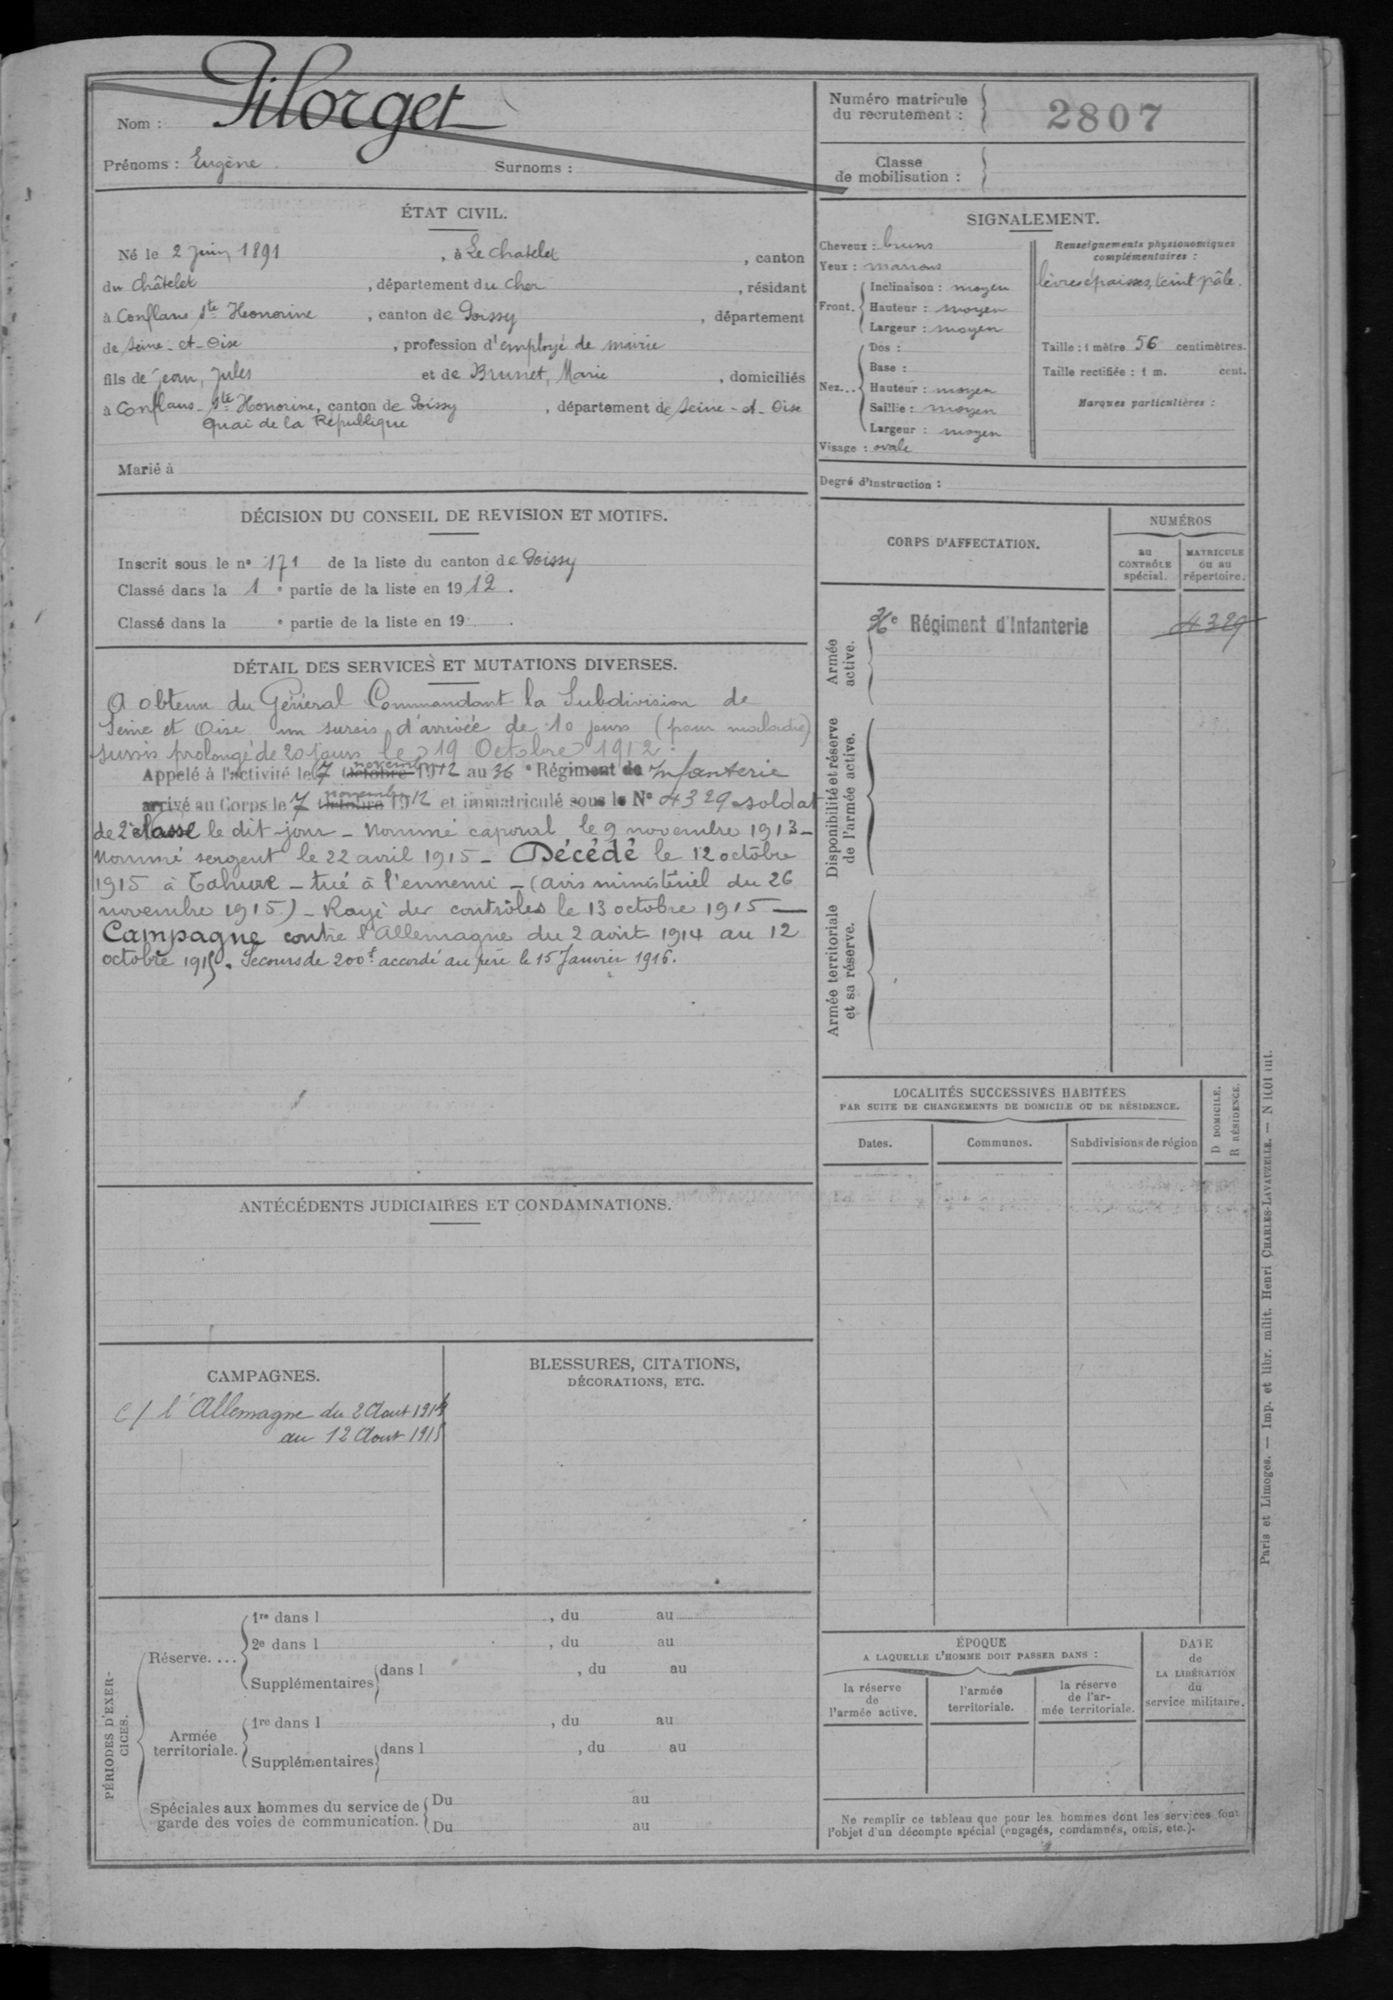 Nom : Pilorget
Prénoms : Eugène Surnoms :
Numéro matricule du recrutement : 2807
Classe de mobilisation :
ÉTAT CIVIL.
Né le 2 juin 1891, à Le Chatelet, canton
du Châtelet, département du Cher, résidant
à Conflans Ste Honorine, canton de Poissy, département
de Seine-et-Oise, profession d'employé de mairie
fils de Jean, Jules et de Brunet, Marie, domiciliés
à Conflans-Ste Honorine, canton de Poissy, département de Seine-et-Oise
Quai de la République
Marié à
SIGNALEMENT.
Cheveux : bruns
Yeux : marrons
Front. Inclinaison : moyen
Hauteur : moyen
Largeur : moyen
Nez... Dos :
Base :
Hauteur : moyen
Saillie : moyen
Largeur : moyen
Visage : ovale
Renseignements physionomiques complémentaires :
lèvres épaisses, teint pâle.
Taille : 1 mètre 56 centimètres.
Taille rectifiée : 1 m. cent.
Marques particulières :
Degré d'instruction :
DÉCISION DU CONSEIL DE REVISION ET MOTIFS.
Inscrit sous le n° 171 de la liste du canton de Poissy
Classé dans la 1e partie de la liste en 1912.
Classé dans la e partie de la liste en 19 .
DÉTAIL DES SERVICES ET MUTATIONS DIVERSES.
A obtenu du Général Commandant la Subdivision de
Seine et Oise un sursis d'arrivée de 10 jours (pour maladie)
sursis prolongé de 20 jours le 19 Octobre 1912.
Appelé à l'activité le 7 Octobre novembre 1912 au 36e Régiment de Infanterie
arrivé au Corps le 7 Octobre novembre 1912 et immatriculé sous le N° 4329 soldat
de 2e classe le dit jour - Nommé caporal le 9 novembre 1913 -
Nommé sergent le 22 avril 1915 - Décédé le 12 octobre
1915 à Tahure - tué à l'ennemi - (avis ministériel du 26
novembre 1915) - Rayé des contrôles le 13 octobre 1915 -
Campagne contre l'Allemagne du 2 août 1914 au 12
octobre 1915. Secours de 200f accordé au père le 15 Janvier 1916.
CORPS D'AFFECTATION.
NUMÉROS
au CONTRÔLE spécial.
MATRICULE ou au répertoire.
Armée active.
36e Régiment d'Infanterie 4329
Disponibilité et réserve de l'armée active.
Armée territoriale et sa réserve.
LOCALITÉS SUCCESSIVES HABITÉES
PAR SUITE DE CHANGEMENTS DE DOMICILE OU DE RÉSIDENCE.
Dates. Communes. Subdivisions de région
D DOMICILE.
R RÉSIDENCE.
ANTÉCÉDENTS JUDICIAIRES ET CONDAMNATIONS.
CAMPAGNES.
c/ l'Allemagne du 2 Aout 1914
au 12 Aout 1915
BLESSURES, CITATIONS,
DÉCORATIONS, ETC.
PÉRIODES D'EXERCICES.
Réserve....
1re dans l , du au
2e dans l , du au
Supplémentaires dans l , du au
Armée territoriale.
1re dans l , du au
Supplémentaires dans l , du au
Spéciales aux hommes du service de
garde des voies de communication.
Du au
Du au
ÉPOQUE
A LAQUELLE L'HOMME DOIT PASSER DANS :
la réserve de l'armée active.
l'armée territoriale.
la réserve de l'armée territoriale.
DATE de LA LIBÉRATION du service militaire.
Ne remplir ce tableau que pour les hommes dont les services font
l'objet d'un décompte spécial (engagés, condamnés, omis, etc.).
Paris et Limoges. — Imp. et libr. milit. Henri CHARLES-LAVAUZELLE. —